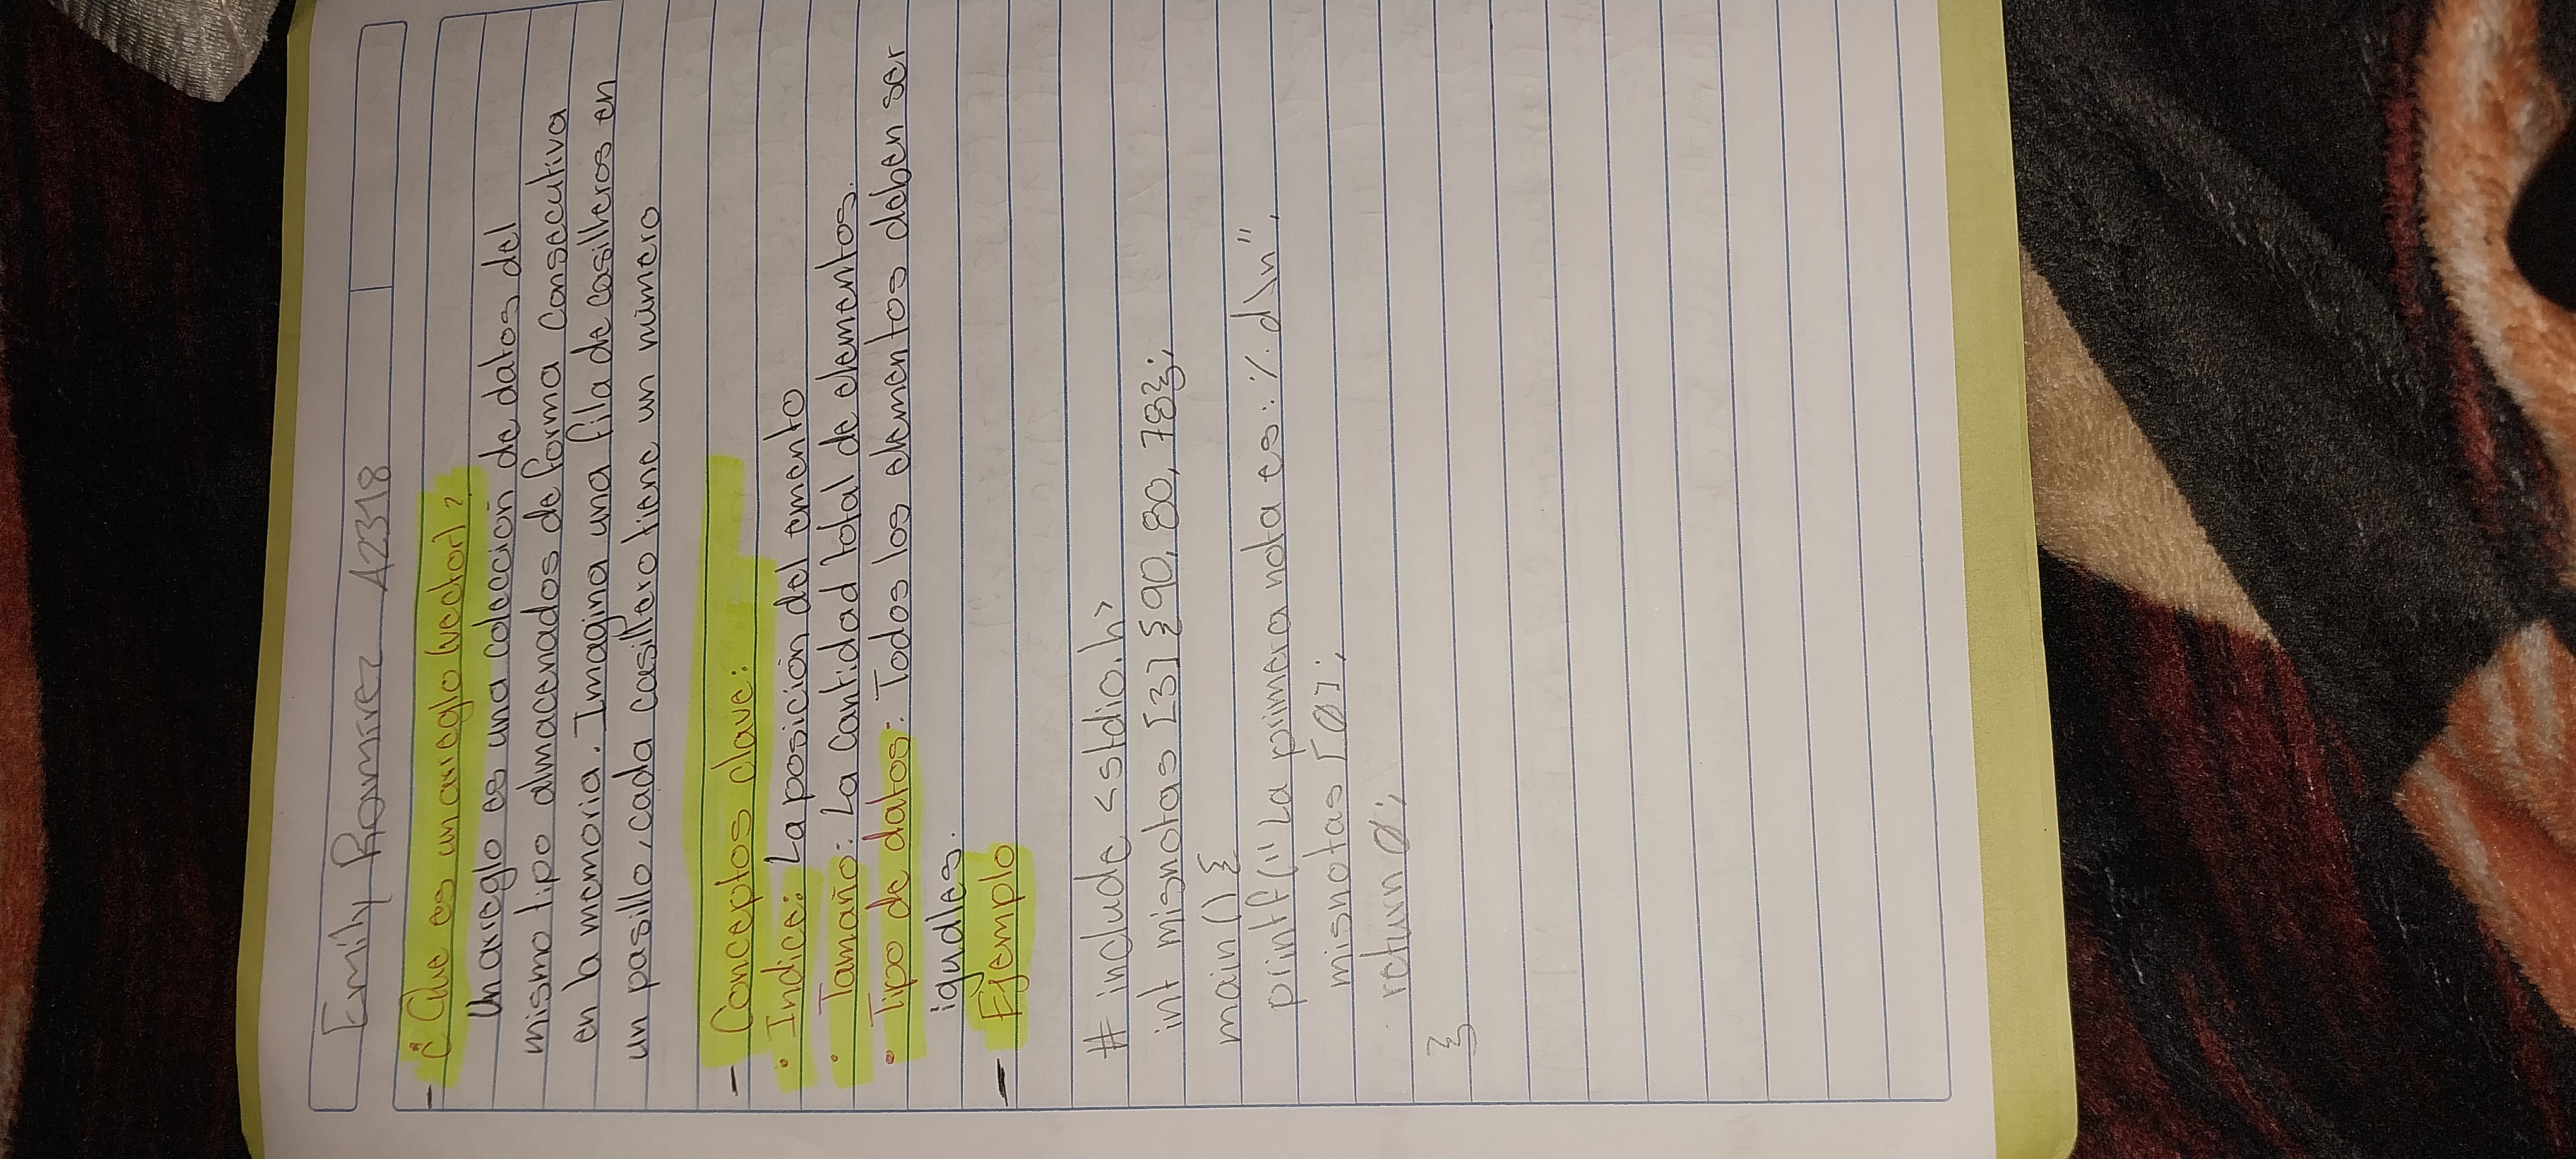 Emily Ramirez A2318
- ¿Que es un arreglo (vector)?
Un arreglo es una colección de datos del
mismo tipo almacenados de forma consecutiva
en la memoria. Imagina una fila de casilleros en
un pasillo, cada casillero tiene un número
- Conceptos clave:
• Indice: La posición del emento
• Tamaño: La cantidad total de elementos.
• Tipo de datos: Todos los elementos deben ser
iguales.
- Ejemplo
# include <stdio.h>
int misnotas [3] {90, 80, 78};
main () {
printf (" La primera nota es: %. d\n",
misnotas [0];
return 0;
}